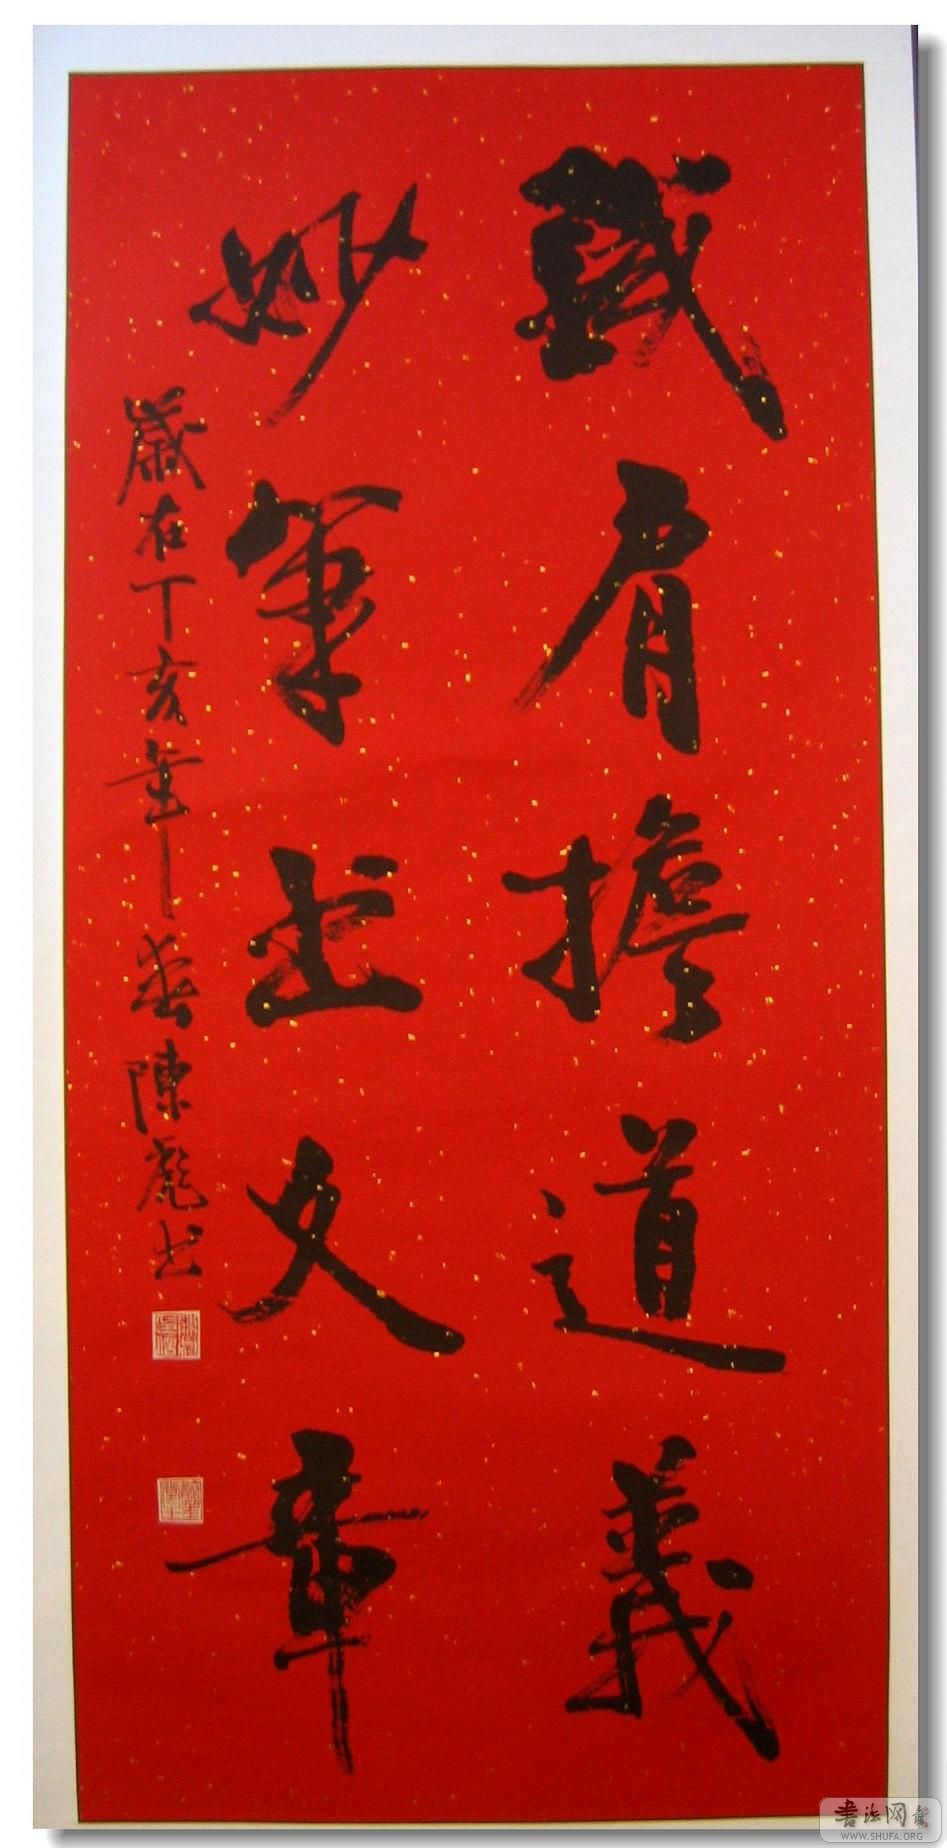 鐵肩擔道義
妙筆出文章
歲在丁亥年春陳彪书
書法网
WWW.SHUFA.ORG